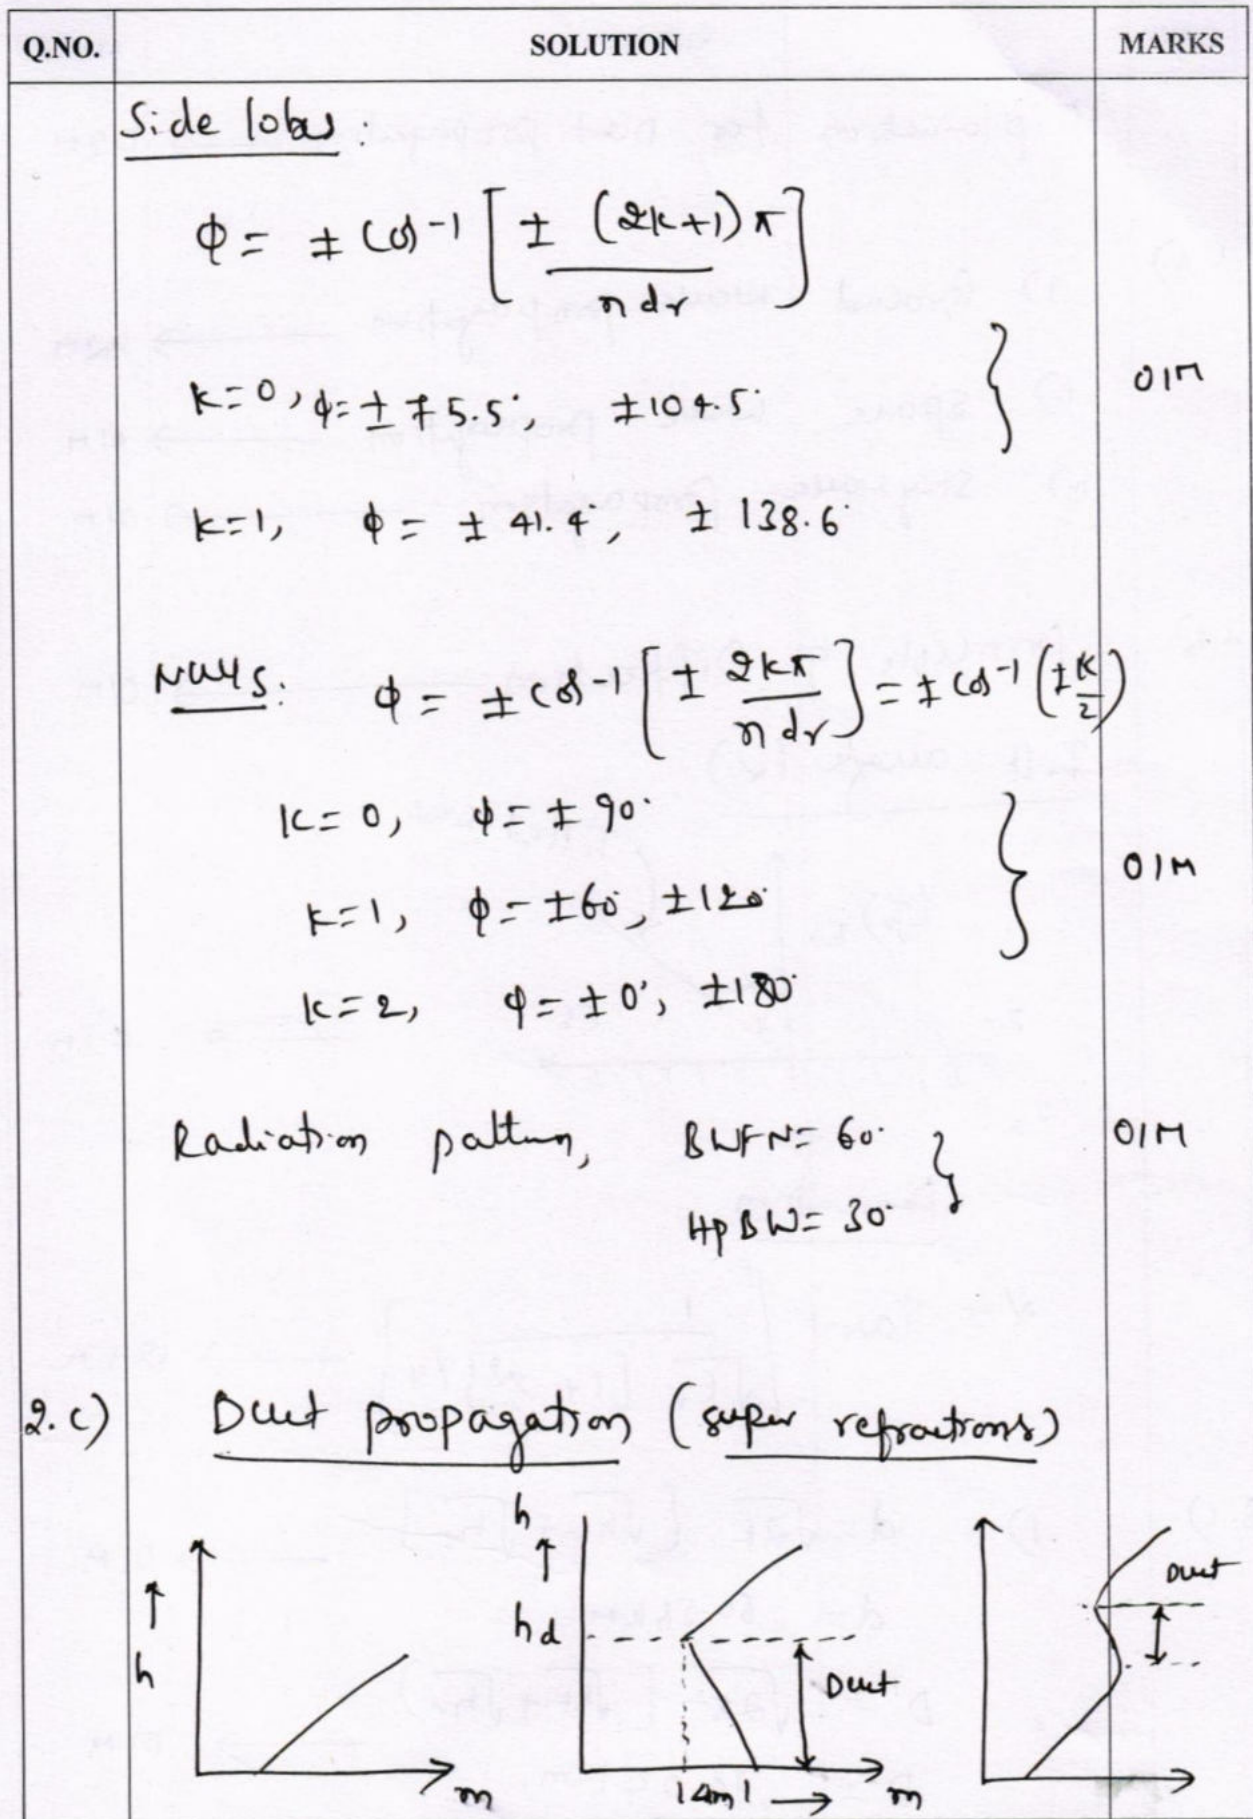 Q.NO. SOLUTION MARKS
Side lobes :
ϕ = ± cos⁻¹ [ ± (2k+1)π / n dr ]
k=0, ϕ = ± 75.5°, ±104.5° } 01M
k=1, ϕ = ± 41.4°, ± 138.6°
Nulls: ϕ = ± cos⁻¹ [ ± 2kπ / n dr ] = ± cos⁻¹ (± k/2)
k=0, ϕ = ± 90°
k=1, ϕ = ±60°, ±120° } 01M
k=2, ϕ = ±0°, ±180°
Radiation pattern, BWFN= 60° } 01M
HPBW= 30°
2.c) Duct propagation (super refractions)
h h Duct
h hd Duct
m |Δm| → m